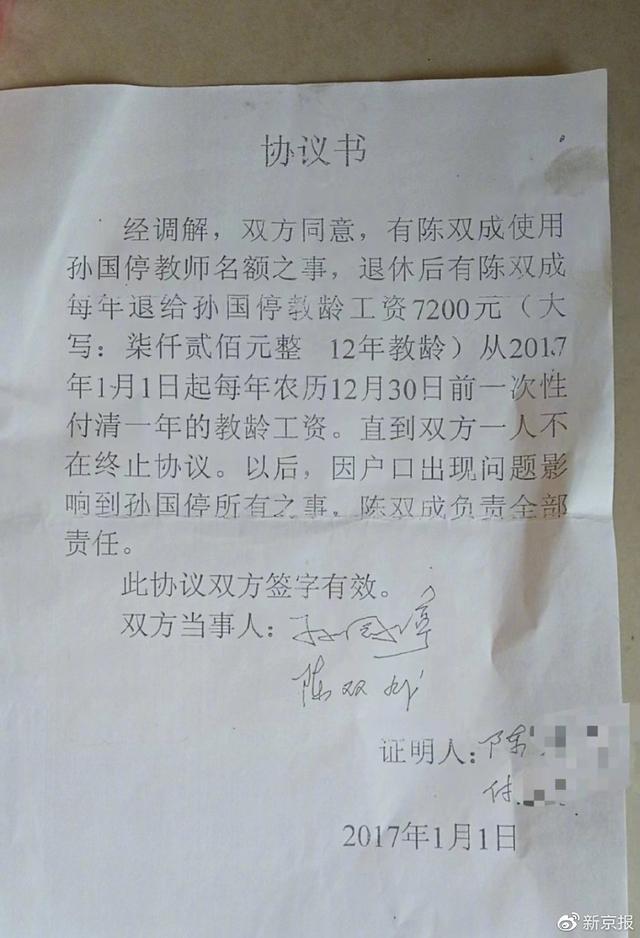 协议书
经调解，双方同意，有陈双成使用
孙国停教师名额之事，退休后有陈双成
每年退给孙国停教龄工资7200元（大
写：柒仟贰佰元整 12年教龄）从2017
年1月1日起每年农历12月30日前一次性
付清一年的教龄工资。直到双方一人不
在终止协议。以后，因户口出现问题影
响到孙国停所有之事，陈双成负责全部
责任。
此协议双方签字有效。
双方当事人：孙国停
陈双成
证明人：陈
付
2017年1月1日
新京报